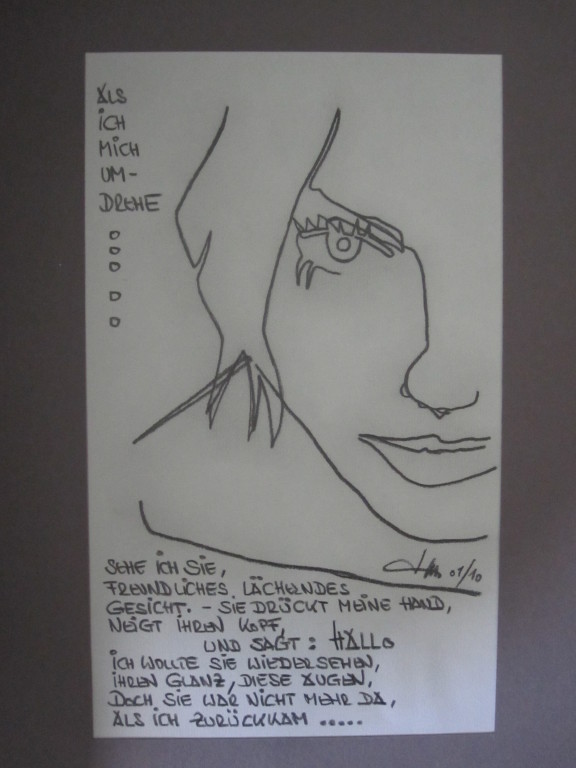 ALS
ICH
MICH
UM-
DREHE
SEHE ICH SIE,
FREUNDLICHES, LÄCHELNDES
GESICHT. - SIE DRÜCKT MEINE HAND,
NEIGT IHREN KOPF,
UND SAGT: HALLO
ICH WOLLTE SIE WIEDERSEHEN,
IHREN GLANZ, DIESE AUGEN,
DOCH SIE WAR NICHT MEHR DA,
ALS ICH ZURÜCKKAM .....
01/10